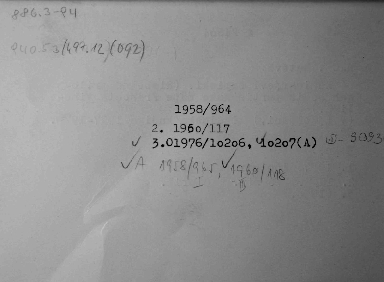 886.3-94
940.53(497.12)(092)
1958/964
2. 1960/117
✓ 3.01976/10206, ✓10207(A) II - 9093
✓A 1958/965, ✓1960/118
I II